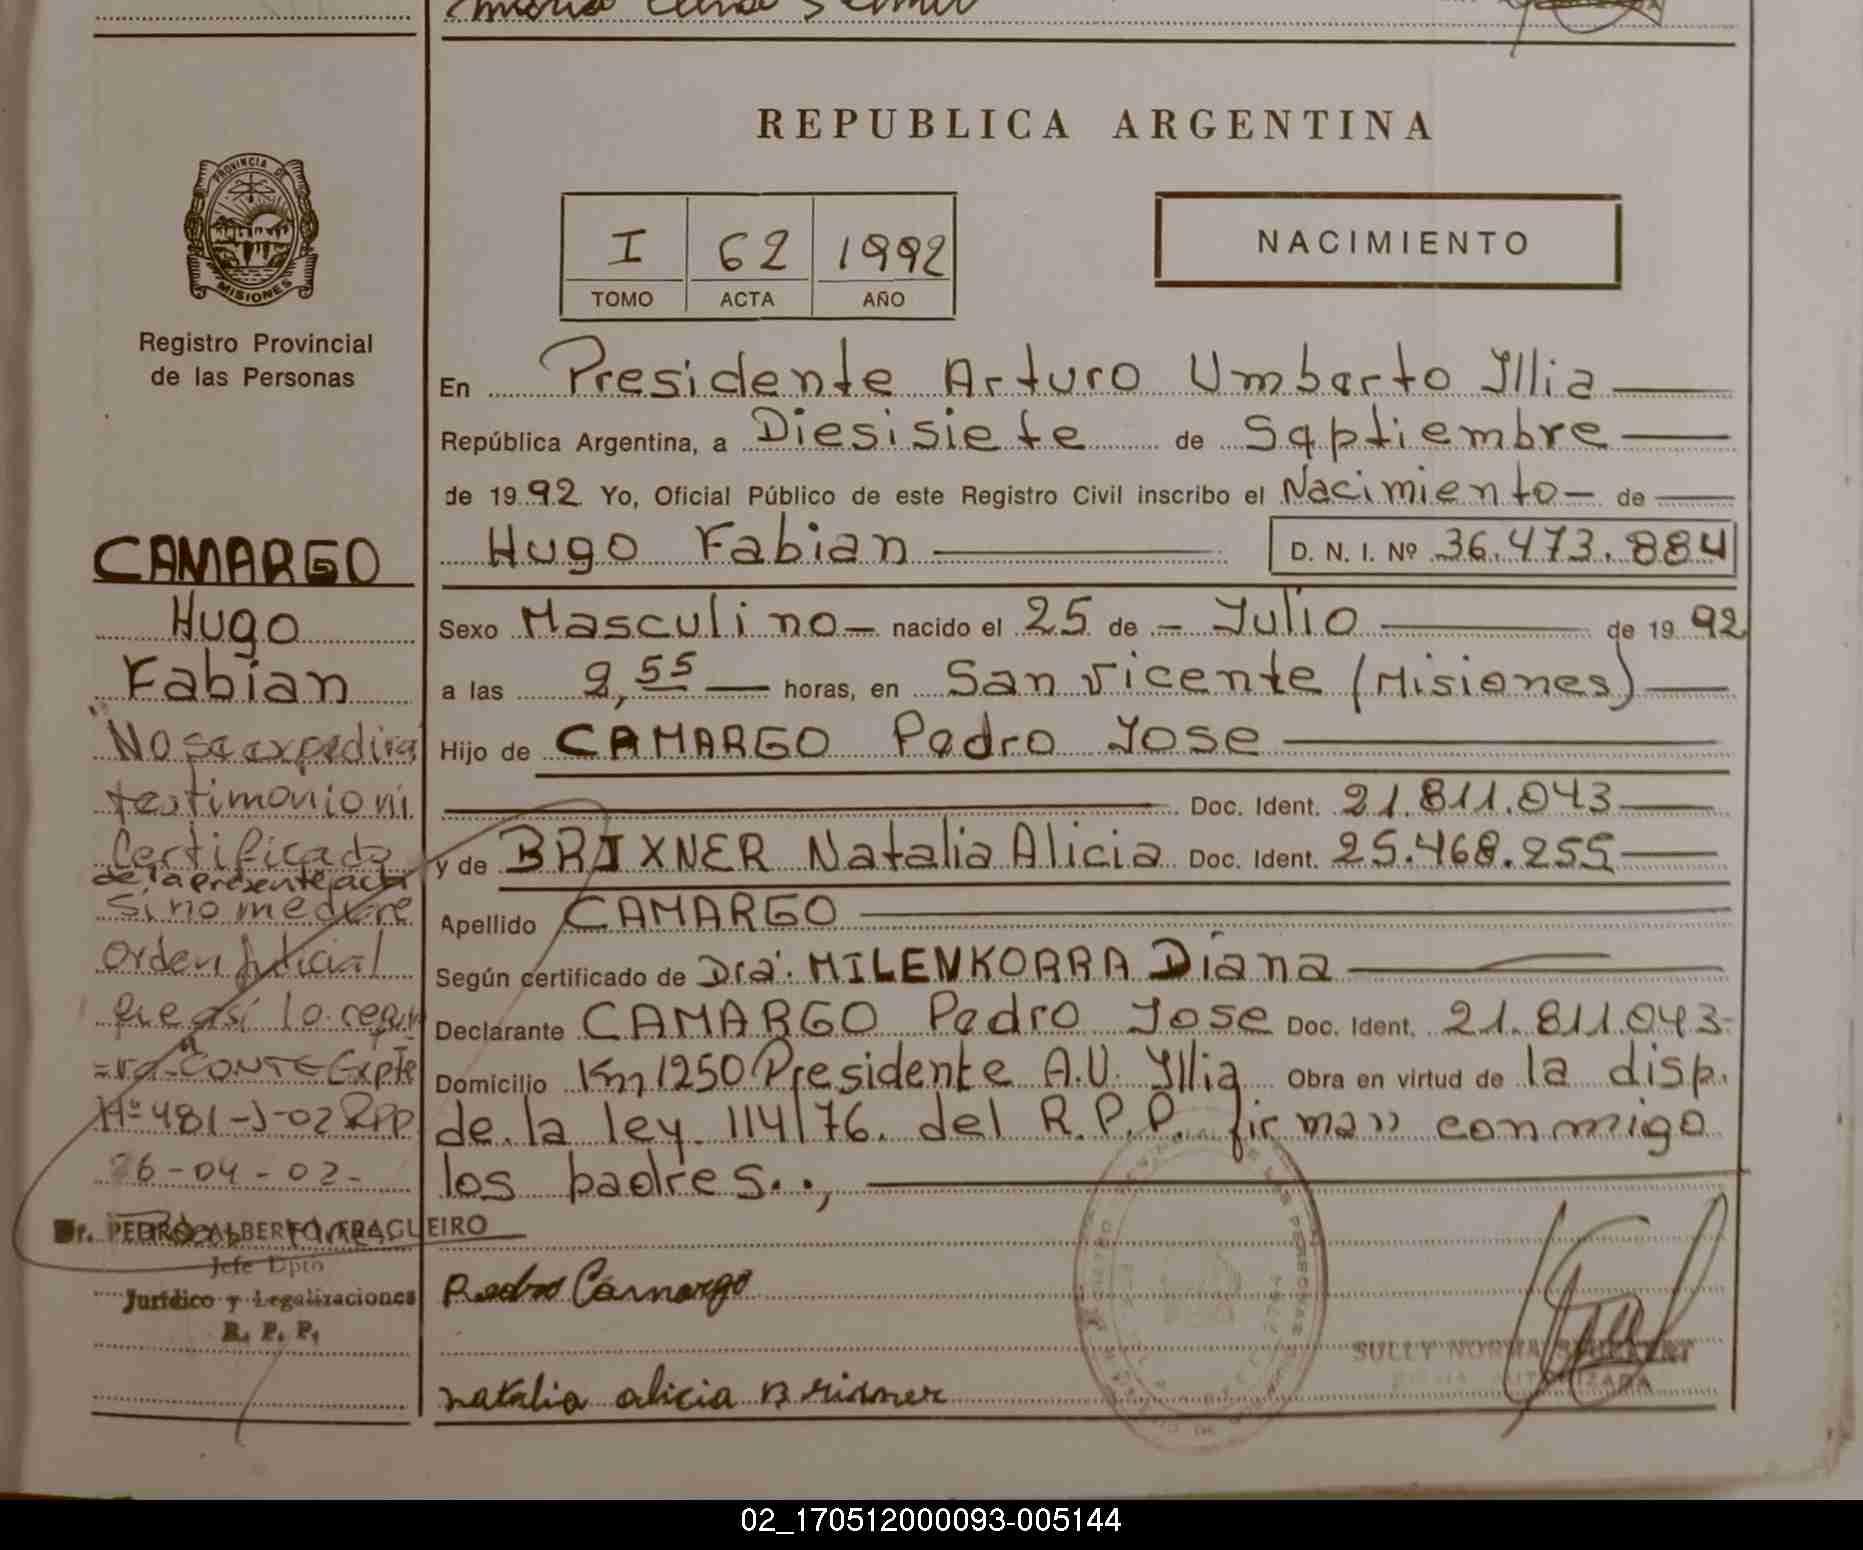 REPUBLICA ARGENTINA
PROVINCIA DE MISIONES
Registro Provincial
de las Personas
I 62 1992
TOMO ACTA AÑO
NACIMIENTO
En Presidente Arturo Umberto Illia
República Argentina, a Diesisiete de Septiembre
de 1992 Yo, Oficial Público de este Registro Civil inscribo el Nacimiento de
Hugo Fabian D. N. I. Nº 36.473.884
Sexo Masculino nacido el 25 de Julio de 1992
a las 9,55 horas, en San Vicente (Misiones)
Hijo de CAMARGO Pedro Jose
Doc. Ident. 21.811.043
y de BRIXNER Natalia Alicia Doc. Ident. 25.468.255
Apellido CAMARGO
Según certificado de Dra. MILENKORRA Diana
Declarante CAMARGO Pedro Jose Doc. Ident. 21.811.043
Domicilio Km 1250 Presidente A.U. Illia Obra en virtud de la disp.
de la ley 114/76. del R.P.P. firman conmigo
los padres..,
Pedro Camargo
natalia alicia Brixner
SULLY NORMA
CAMARGO
Hugo
Fabian
"No se expedira
testimonio ni
Certificado
de la presente acta
si no mediare
Orden Judicial
que así lo requi
=ra" CONTE Expte
Nº 481-J-02 RPP
26-04-02-
Dr. PEDRO ALBERTO FRAGUEIRO
Jefe Dpto
Jurídico y Legalizaciones
R. P. P.
02_170512000093-005144